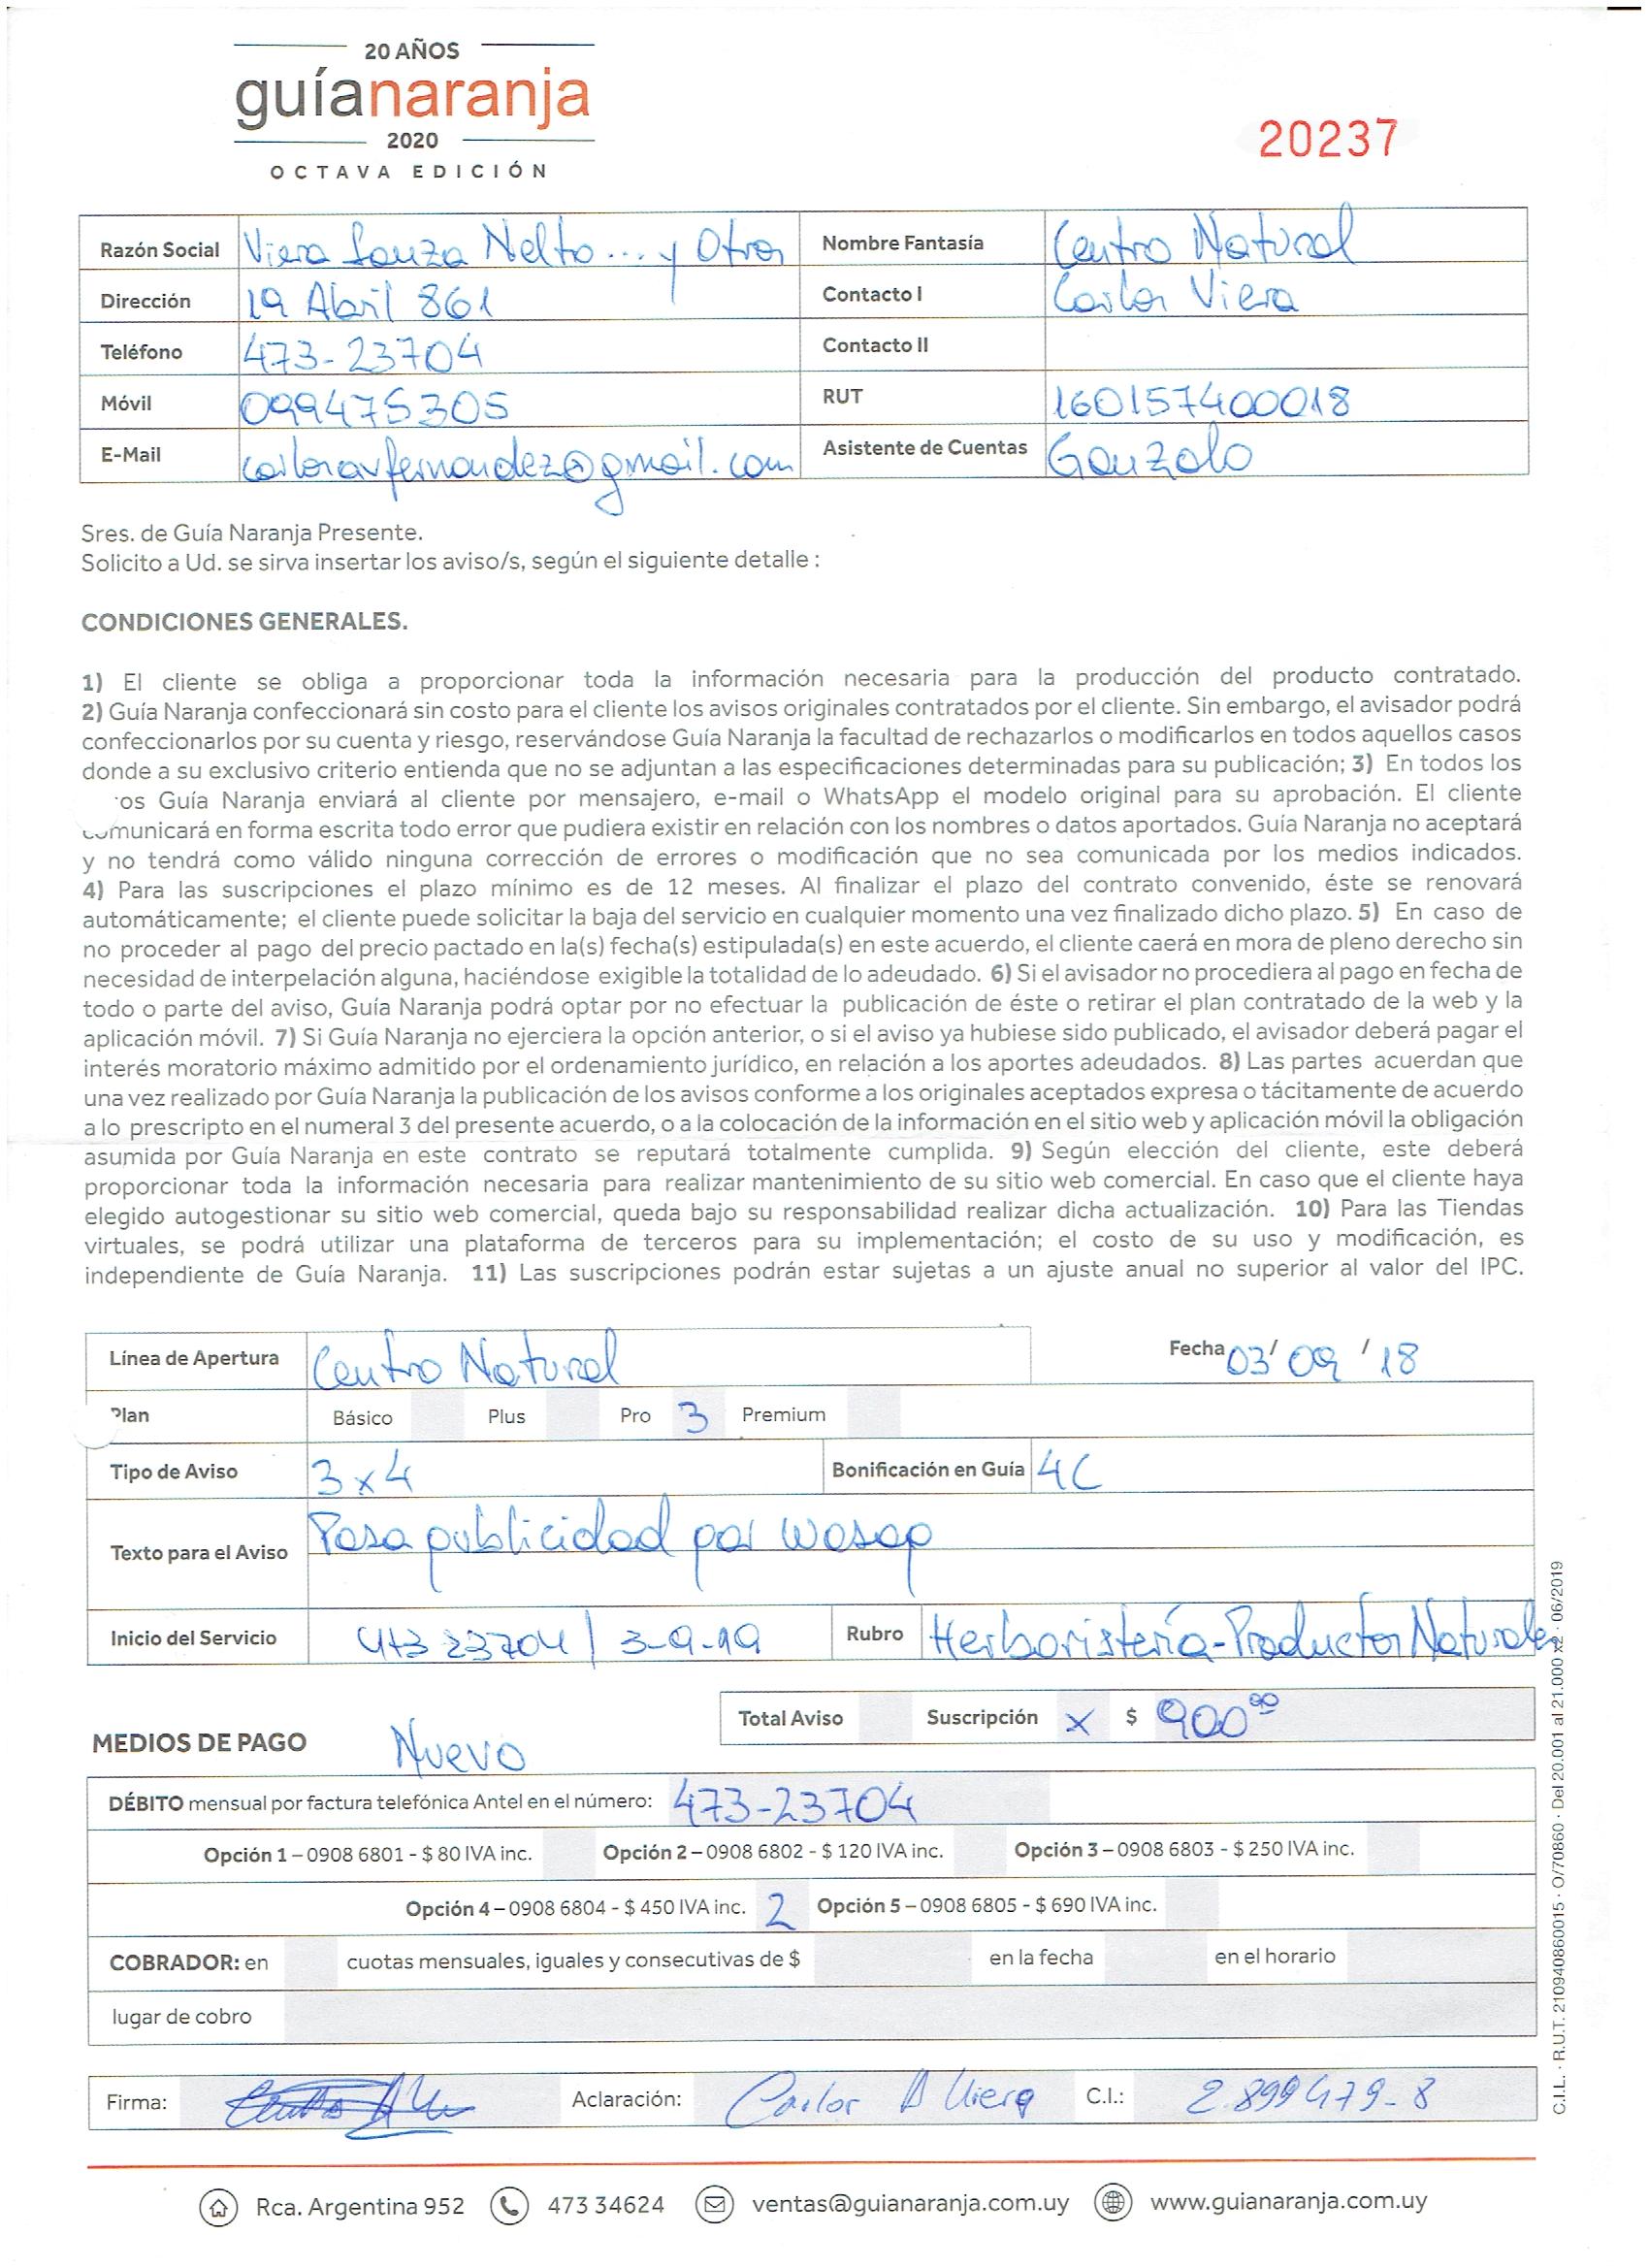 20 AÑOS
guíanaranja
2020
OCTAVA EDICIÓN
20237
Razón Social Viera Souza Nelto... y Otros Nombre Fantasía Centro Natural
Dirección 19 Abril 861 Contacto I Carlos Viera
Teléfono 473-23704 Contacto II
Móvil 099475305 RUT 160157400018
E-Mail carlosavfernandez@gmail.com Asistente de Cuentas Gonzalo
Sres. de Guía Naranja Presente.
Solicito a Ud. se sirva insertar los aviso/s, según el siguiente detalle :
CONDICIONES GENERALES.
1) El cliente se obliga a proporcionar toda la información necesaria para la producción del producto contratado.
2) Guía Naranja confeccionará sin costo para el cliente los avisos originales contratados por el cliente. Sin embargo, el avisador podrá
confeccionarlos por su cuenta y riesgo, reservándose Guía Naranja la facultad de rechazarlos o modificarlos en todos aquellos casos
donde a su exclusivo criterio entienda que no se adjuntan a las especificaciones determinadas para su publicación; 3) En todos los
os Guía Naranja enviará al cliente por mensajero, e-mail o WhatsApp el modelo original para su aprobación. El cliente
comunicará en forma escrita todo error que pudiera existir en relación con los nombres o datos aportados. Guía Naranja no aceptará
y no tendrá como válido ninguna corrección de errores o modificación que no sea comunicada por los medios indicados.
4) Para las suscripciones el plazo mínimo es de 12 meses. Al finalizar el plazo del contrato convenido, éste se renovará
automáticamente; el cliente puede solicitar la baja del servicio en cualquier momento una vez finalizado dicho plazo. 5) En caso de
no proceder al pago del precio pactado en la(s) fecha(s) estipulada(s) en este acuerdo, el cliente caerá en mora de pleno derecho sin
necesidad de interpelación alguna, haciéndose exigible la totalidad de lo adeudado. 6) Si el avisador no procediera al pago en fecha de
todo o parte del aviso, Guía Naranja podrá optar por no efectuar la publicación de éste o retirar el plan contratado de la web y la
aplicación móvil. 7) Si Guía Naranja no ejerciera la opción anterior, o si el aviso ya hubiese sido publicado, el avisador deberá pagar el
interés moratorio máximo admitido por el ordenamiento jurídico, en relación a los aportes adeudados. 8) Las partes acuerdan que
una vez realizado por Guía Naranja la publicación de los avisos conforme a los originales aceptados expresa o tácitamente de acuerdo
a lo prescripto en el numeral 3 del presente acuerdo, o a la colocación de la información en el sitio web y aplicación móvil la obligación
asumida por Guía Naranja en este contrato se reputará totalmente cumplida. 9) Según elección del cliente, este deberá
proporcionar toda la información necesaria para realizar mantenimiento de su sitio web comercial. En caso que el cliente haya
elegido autogestionar su sitio web comercial, queda bajo su responsabilidad realizar dicha actualización. 10) Para las Tiendas
virtuales, se podrá utilizar una plataforma de terceros para su implementación; el costo de su uso y modificación, es
independiente de Guía Naranja. 11) Las suscripciones podrán estar sujetas a un ajuste anual no superior al valor del IPC.
Línea de Apertura Centro Natural Fecha 03/ 09 / 18
Plan Básico Plus Pro 3 Premium
Tipo de Aviso 3x4 Bonificación en Guía 4C
Texto para el Aviso Pasa publicidad por wasap
Inicio del Servicio 473 23704 / 3-9-19 Rubro Herboristería-Productos Naturales
Total Aviso Suscripción x $ 900⁰⁰
MEDIOS DE PAGO Nuevo
DÉBITO mensual por factura telefónica Antel en el número: 473-23704
Opción 1 – 0908 6801 - $ 80 IVA inc. Opción 2 – 0908 6802 - $ 120 IVA inc. Opción 3 – 0908 6803 - $ 250 IVA inc.
Opción 4 – 0908 6804 - $ 450 IVA inc. 2 Opción 5 – 0908 6805 - $ 690 IVA inc.
COBRADOR: en cuotas mensuales, iguales y consecutivas de $ en la fecha en el horario
lugar de cobro
Firma: Aclaración: Carlos A Viera C.I.: 2.899479-8
Rca. Argentina 952 473 34624 ventas@guianaranja.com.uy www.guianaranja.com.uy
C.I.L. · R.U.T. 210940860015 · O/70860 · Del 20.001 al 21.000 x2 · 06/2019